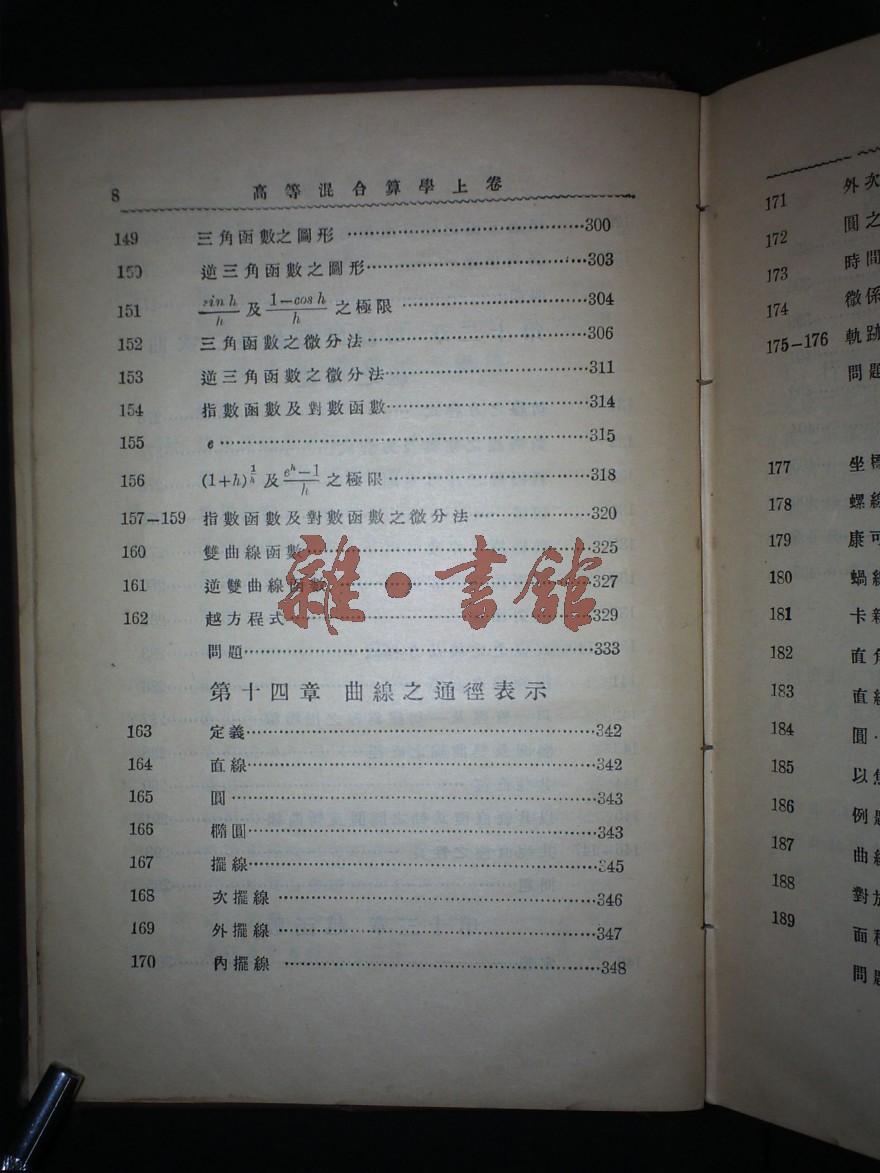 8 高等混合算學上卷
149 三角函數之圖形 ……………300
150 逆三角函數之圖形……………303
151 sin h/h 及 1−cos h/h 之極限 ……………304
152 三角函數之微分法……………306
153 逆三角函數之微分法……………311
154 指數函數及對數函數……………314
155 e……………315
156 (1+h)^{1/h} 及 e^h−1/h 之極限……………318
157—159 指數函數及對數函數之微分法……………320
160 雙曲線函數……………325
161 逆雙曲線函數……………327
162 越方程式……………329
問題……………333
雜·書館
第十四章 曲線之通徑表示
163 定義……………342
164 直線……………342
165 圓……………343
166 橢圓……………343
167 擺線……………345
168 次擺線……………346
169 外擺線……………347
170 內擺線……………348
171 外次
172 圓之
173 時間
174 微係
175—176 軌跡
問題
177 坐標
178 螺線
179 康可
180 蝸線
181 卡
182 直角
183 直線
184 圓
185 以焦
186 例題
187 曲線
188 對於
189 面積
問題